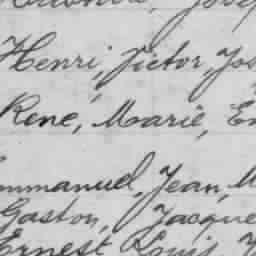 Henri, Victor, Jos
René, Marie, E
mmanuel, Jean, M
Gaston, Jacque
Ernest Louis,